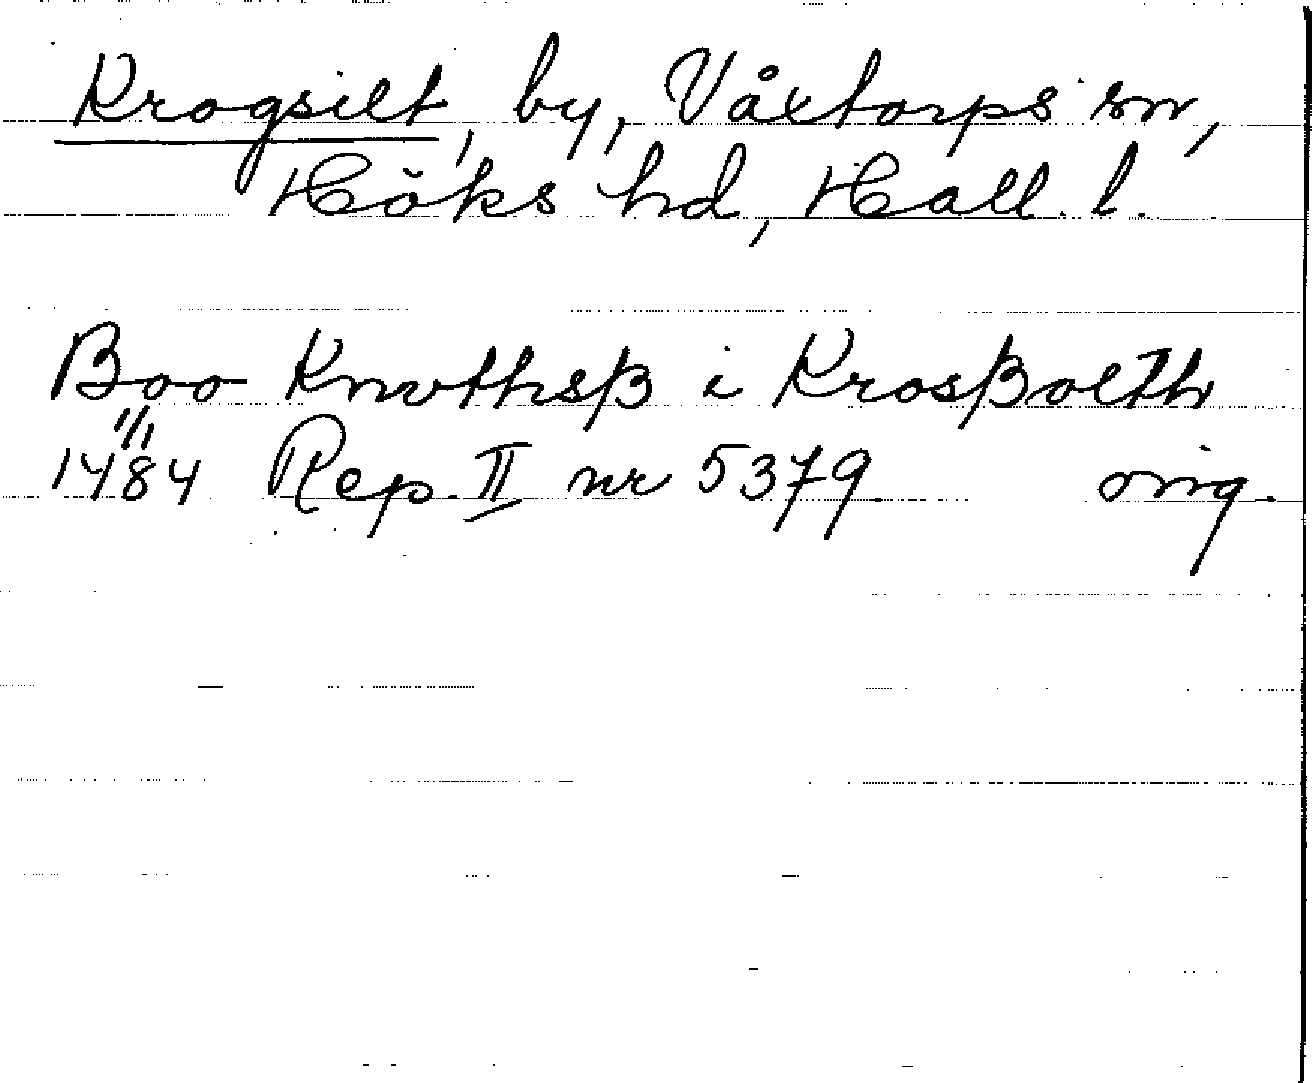 Krogsilt, by, Våxtorps sn,
Höks hd, Hall. l.
Boo Knvthsß i Krosßolth
1484 Rep. II nr 5379. orig.